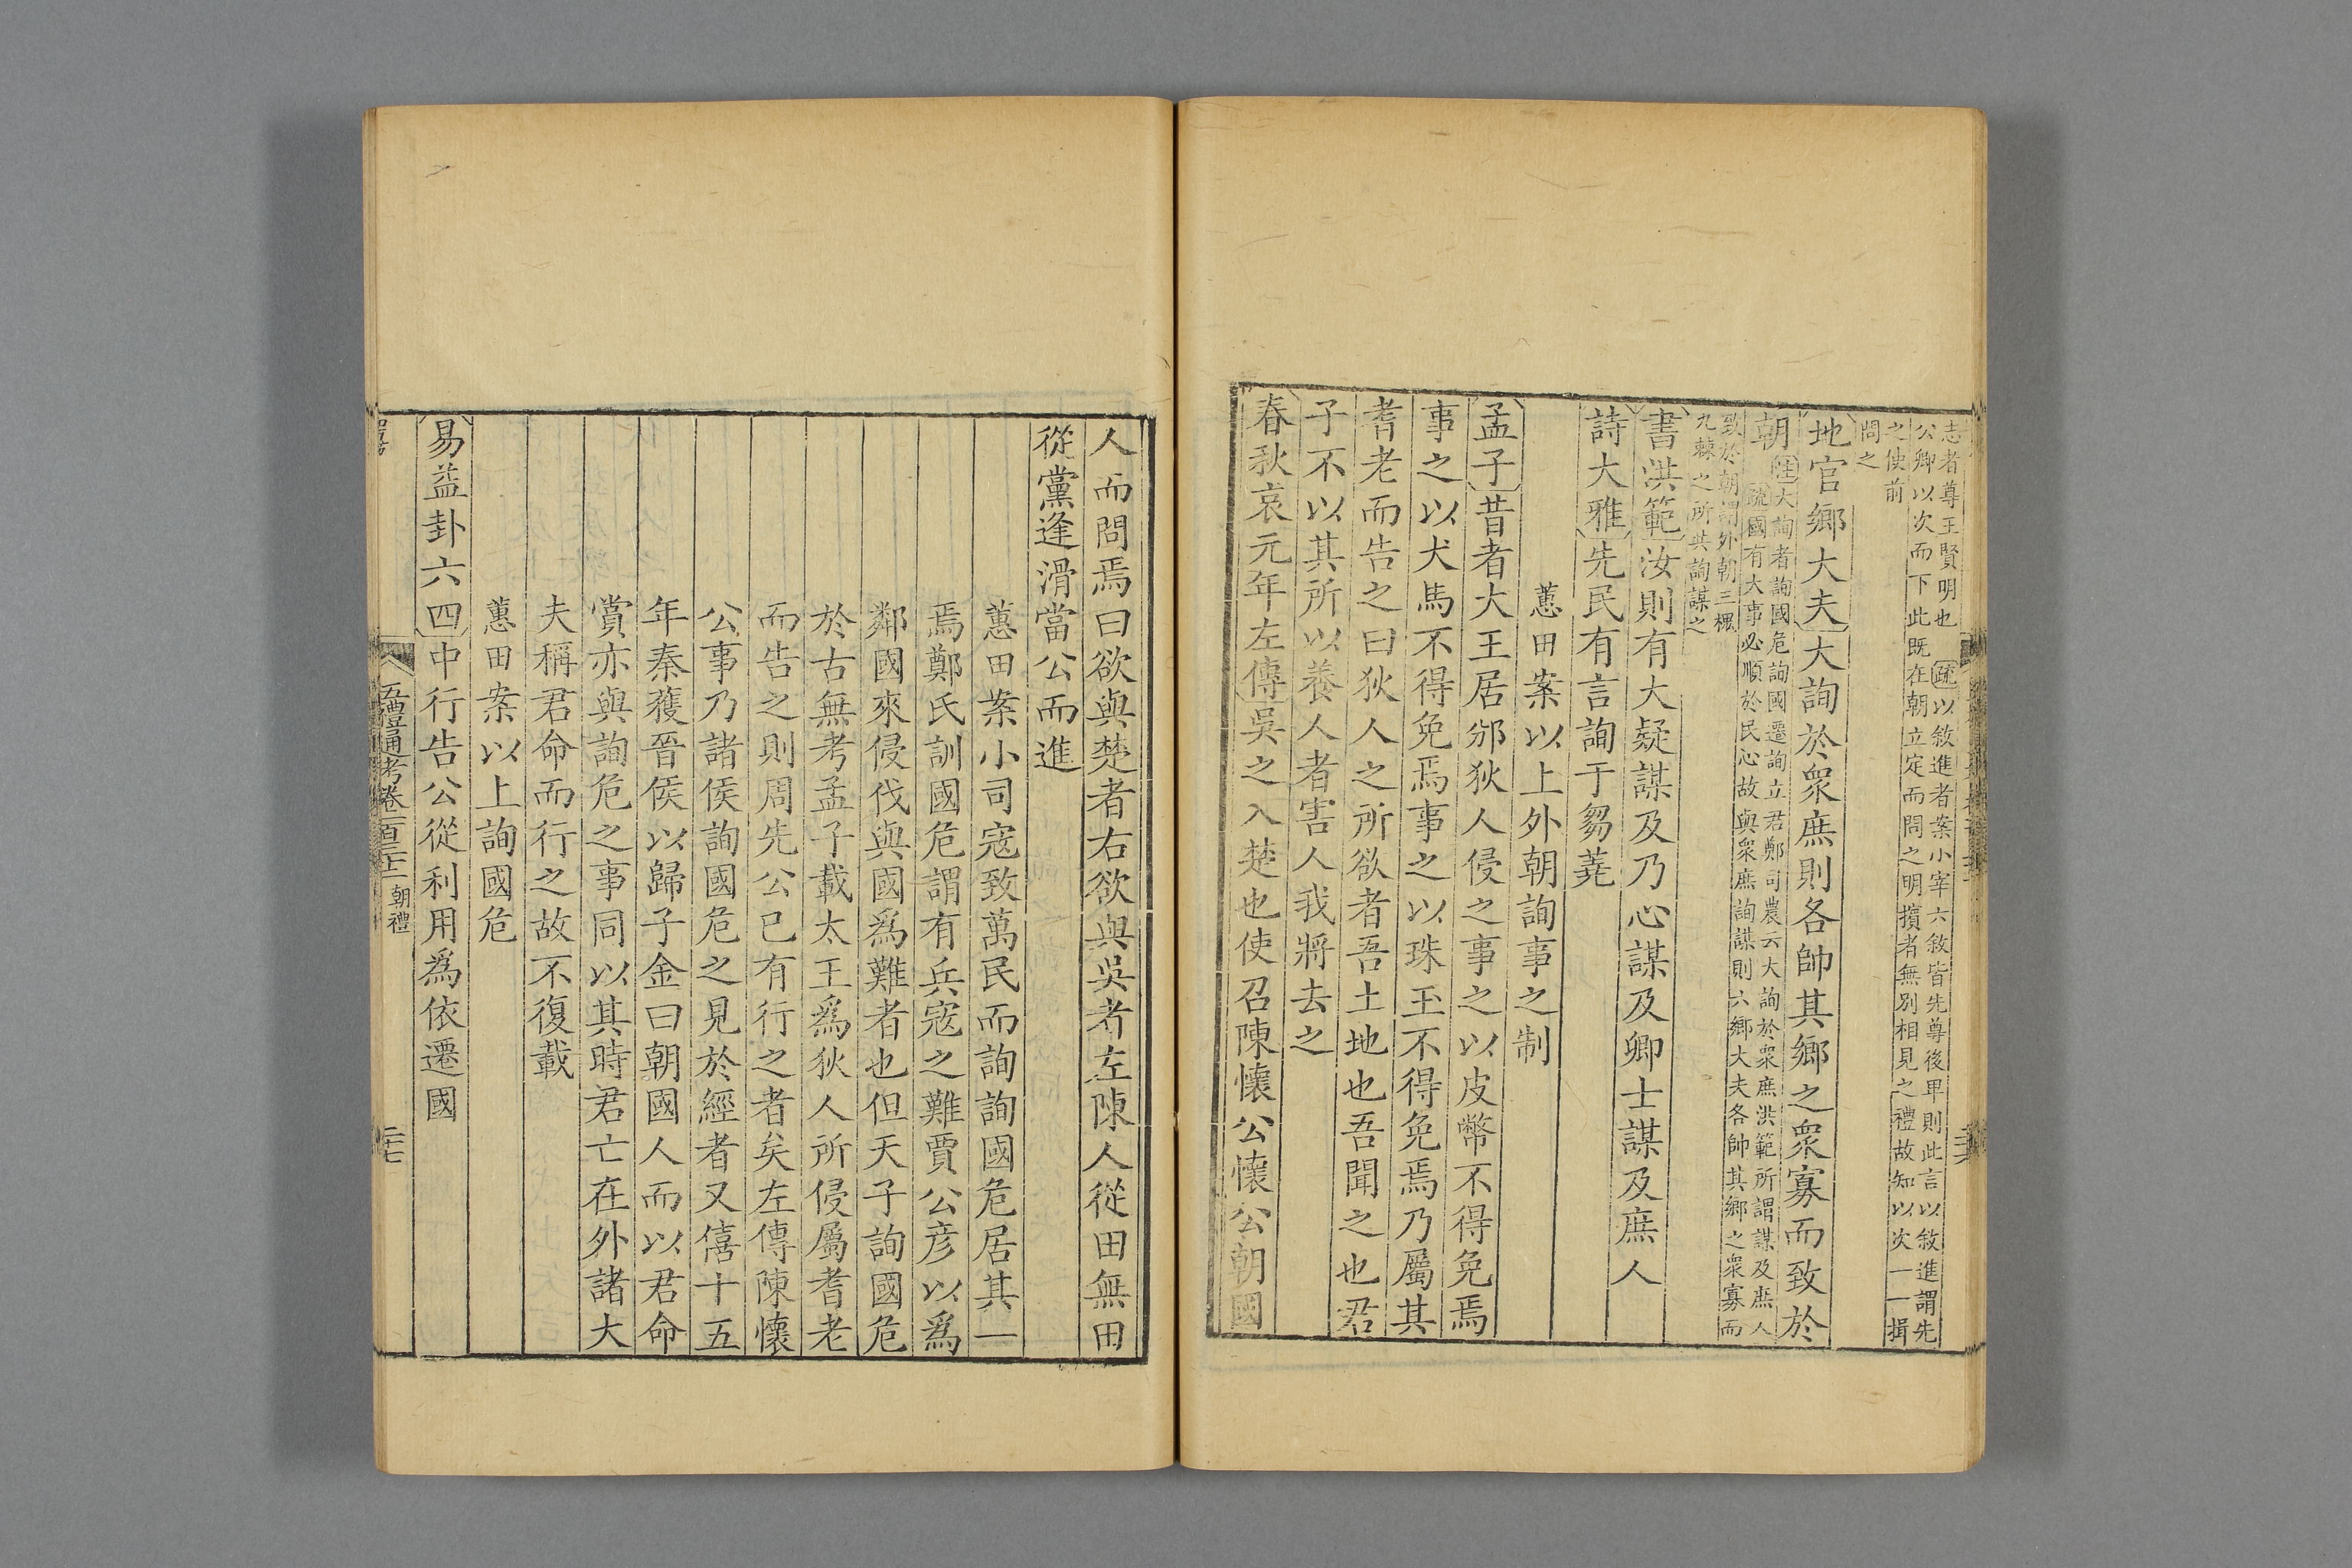 志者尊王賢明也 疏 以敘進者案小宰六敘皆先尊後卑則此言以敘進謂先
公卿以次而下此既在朝立定而問之明擯者無別相見之禮故知以次一一揖
之使前
問之
地官鄉大夫大詢於衆庶則各帥其鄉之衆寡而致於
朝
注大詢者詢國危詢國遷詢立君鄭司農云大詢於衆庶洪範所謂謀及庶人
疏國有大事必順於民心故與衆庶詢謀則六鄉大夫各帥其鄉之衆寡而
致於朝謂外朝三槐
九棘之所共詢謀之
書洪範汝則有大疑謀及乃心謀及卿士謀及庶人
詩大雅先民有言詢于芻蕘
蕙田案以上外朝詢事之制
孟子昔者大王居邠狄人侵之事之以皮幣不得免焉
事之以犬馬不得免焉事之以珠玉不得免焉乃屬其
耆老而告之曰狄人之所欲者吾土地也吾聞之也君
子不以其所以養人者害人我將去之
春秋哀元年左傳吳之入楚也使召陳懷公懷公朝國
人而問焉曰欲與楚者右欲與吳者左陳人從田無田
從黨逢滑當公而進
蕙田案小司寇致萬民而詢詢國危居其一
焉鄭氏訓國危謂有兵寇之難賈公彥以爲
鄰國來侵伐與國爲難者也但天子詢國危
於古無考孟子載太王爲狄人所侵屬耆老
而告之則周先公已有行之者矣左傳陳懷
公事乃諸侯詢國危之見於經者又僖十五
年秦獲晉侯以歸子金曰朝國人而以君命
賞亦與詢危之事同以其時君亡在外諸大
夫稱君命而行之故不復載
蕙田案以上詢國危
易益卦六四中行告公從利用爲依遷國
五禮通考卷一百三十一 朝禮
二十七